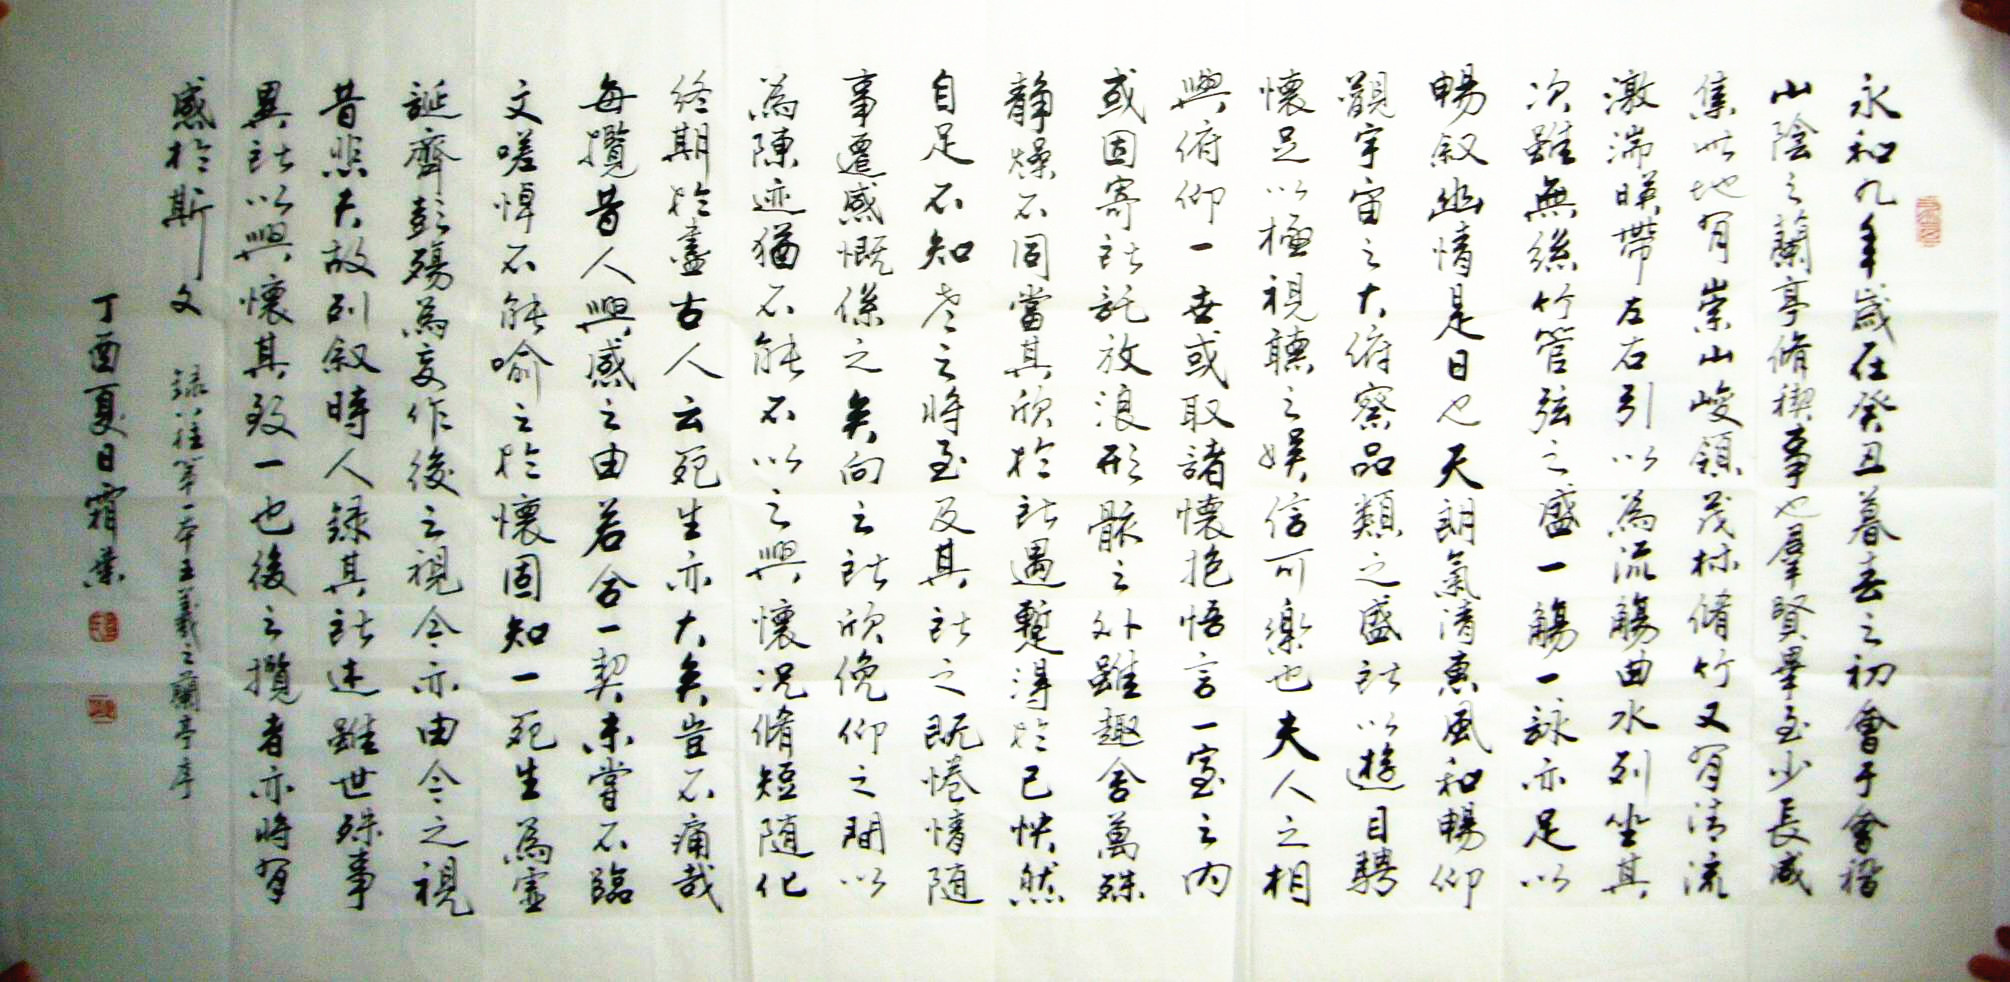 永和九年歲在癸丑暮春之初會于會稽
山陰之蘭亭脩禊事也羣賢畢至少長咸
集此地有崇山峻領茂林脩竹又有清流
激湍暎帶左右引以為流觴曲水列坐其
次雖無絲竹管弦之盛一觴一詠亦足以
暢叙幽情是日也天朗氣清惠風和暢仰
觀宇宙之大俯察品類之盛所以遊目騁
懷足以極視聽之娛信可樂也夫人之相
與俯仰一世或取諸懷抱悟言一室之內
或因寄所託放浪形骸之外雖趣舍萬殊
靜燥不同當其欣於所遇蹔得於己怏然
自足不知老之將至及其所之既惓情隨
事遷感慨係之矣向之所欣俛仰之間以
為陳迹猶不能不以之興懷況脩短隨化
終期於盡古人云死生亦大矣豈不痛哉
每攬昔人興感之由若合一契未嘗不臨
文嗟悼不能喻之於懷固知一死生為虛
誕齊彭殤為妄作後之視今亦由今之視
昔悲夫故列叙時人錄其所述雖世殊事
異所以興懷其致一也後之攬者亦將有
感於斯文
王羲之蘭亭序
丁酉夏日